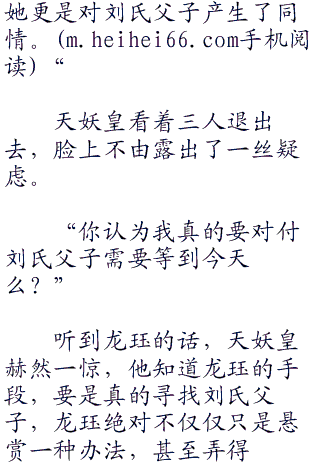 她更是对刘氏父子产生了同
情。(m.heihei66.com手机阅
读)“
天妖皇看着三人退出
去，脸上不由露出了一丝疑
虑。
“你认为我真的要对付
刘氏父子需要等到今天
么？”
听到龙珏的话，天妖皇
赫然一惊，他知道龙珏的手
段，要是真的寻找刘氏父
子，龙珏绝对不仅仅只是悬
赏一种办法，甚至弄得